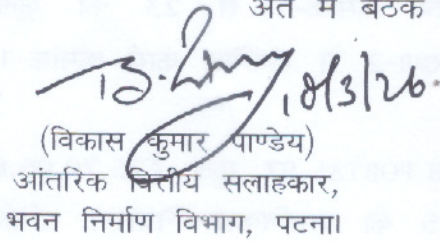 अंत में बैठक
18/3/26.
(विकास कुमार पाण्डेय)
आंतरिक वित्तीय सलाहकार,
भवन निर्माण विभाग, पटना।